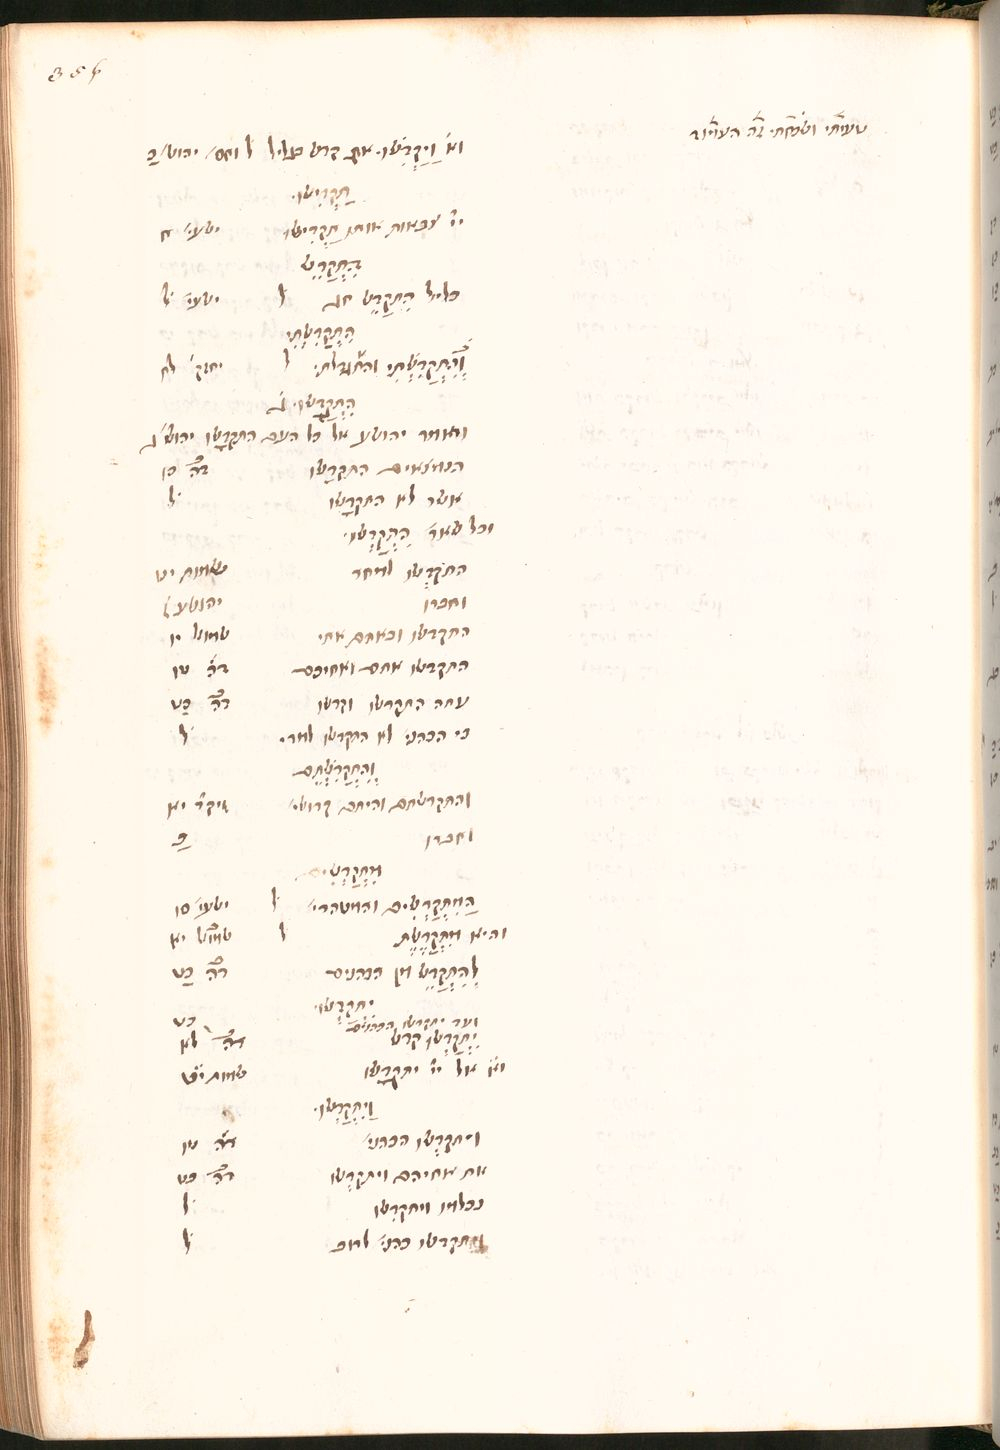 טעיתי
וא׳ וַיַקְדִשוּ את קדש בגליל ל וחס׳ יהוש׳ כ
תַקְדִישוּ
יי׳ צבאות אותו תַקְדִישוּ ישעי׳ ח
הִתְקַדֵש
כליל הִתְקַדֵש חג ל ישעי׳ ל
הִתְקַדִשְתִי
וְהִתְקַדִשְתִי והתגדלתי ל יחזק׳ לח
הִתְקַדָשוּ ג
ויאמר יהושע אל כל העם התקדָשו יהוש׳ ג
הנמצאים התקדָשו
אשר לא התקדָשו ל
וכל שאר הִתְקַדְשוּ
התקדְשו למחר
וחברו יהושע ז
התקדשו ובאתם אתי שמואל יו
התקדשו אתם ואחיכם דה׳ טו
עתה התקדשו וקדשו דה׳ כט
כי הכהני׳ לא התקדשו למדי ל
וְהִתְקַדִשְתֶם
והתקדשתם והיתם קדושי׳ ויקר׳ יא
וחברו כ
מִתְקַדְשִים
הַמִתְקַדְשִים והמטהרי׳ ל ישעי׳ סו
והיא מִתְקַדֶשֶת ל שמואל יא
לְהִתְקַדֵש מן הכהנים דה׳ כט
יִתְקַדְשוּ
ועד יתקדשו הכהנים כט
יִתְקַדְשוּ קדש דה׳ לא
וא׳ אל יי׳ יתקדָשו שמות יט
וַיִתְקַדְשוּ
ויתקדְשו הכהני׳ דה׳ טו
את אחיהם ויתקדְשו דה׳ כט
נכלמו ויתקדְשו ל
ויתקדשו כהני׳ לרוב ל